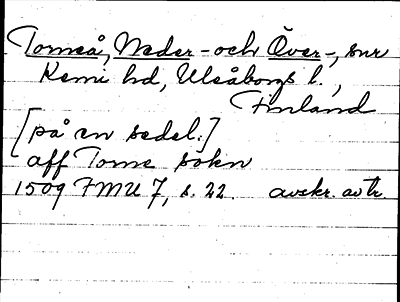 Torneå, Neder- och Över-, snr
Kemi hd, Uleåborgs l.,
Finland
[på en sedel:]
aff Torne sokn
1509 FMU 7, s. 22. avskr. avtr.